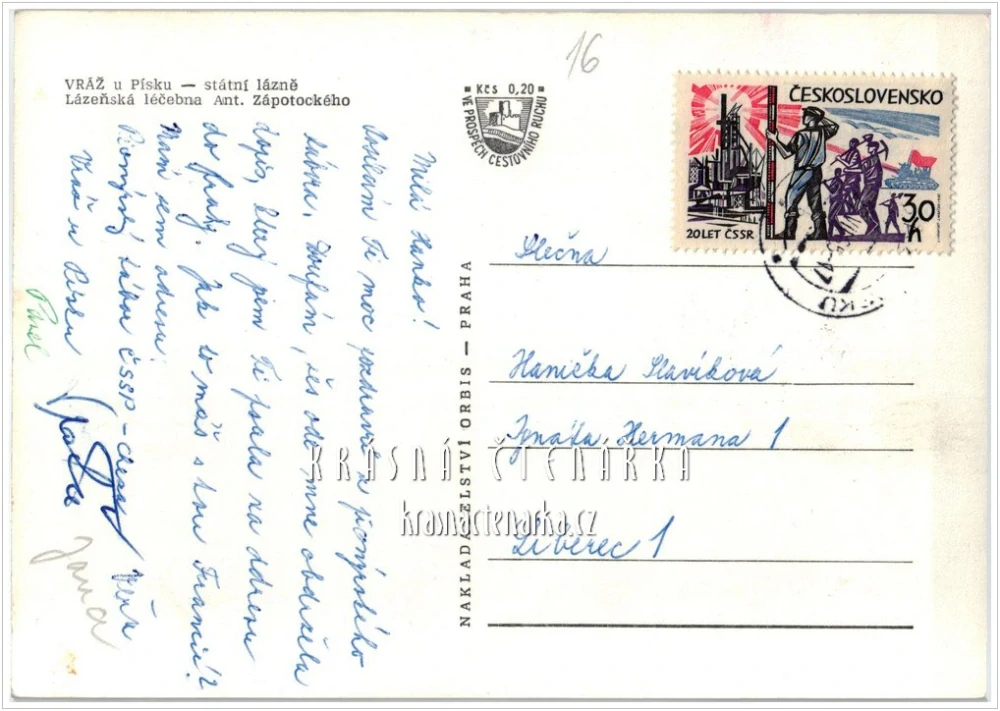 16
VRÁŽ u Písku — státní lázně
Lázeňská léčebna Ant. Zápotockého
Kčs 0,20
VE PROSPĚCH CESTOVNÍHO RUCHU
ČESKOSLOVENSKO
20 LET ČSSR
30 h
Milá Hanko!
Posílám Ti moc pozdravů z pionýrského
tábora. Doufám, žes ode mne obdržela
dopis, který jsem Ti psala na adresu
do Prahy. Jak to máš s tou Francií?
Mám sem adresu:
Pionýrský tábor ČSSP
Vráž u Písku
Věra
Pavel
Jana
NAKLADATELSTVÍ ORBIS — PRAHA
Slečna
Hanička Slavíková
Ignáta Hermana 1
Liberec 1
KRÁSNÁ ČTENÁRKA
krasnactenarka.cz